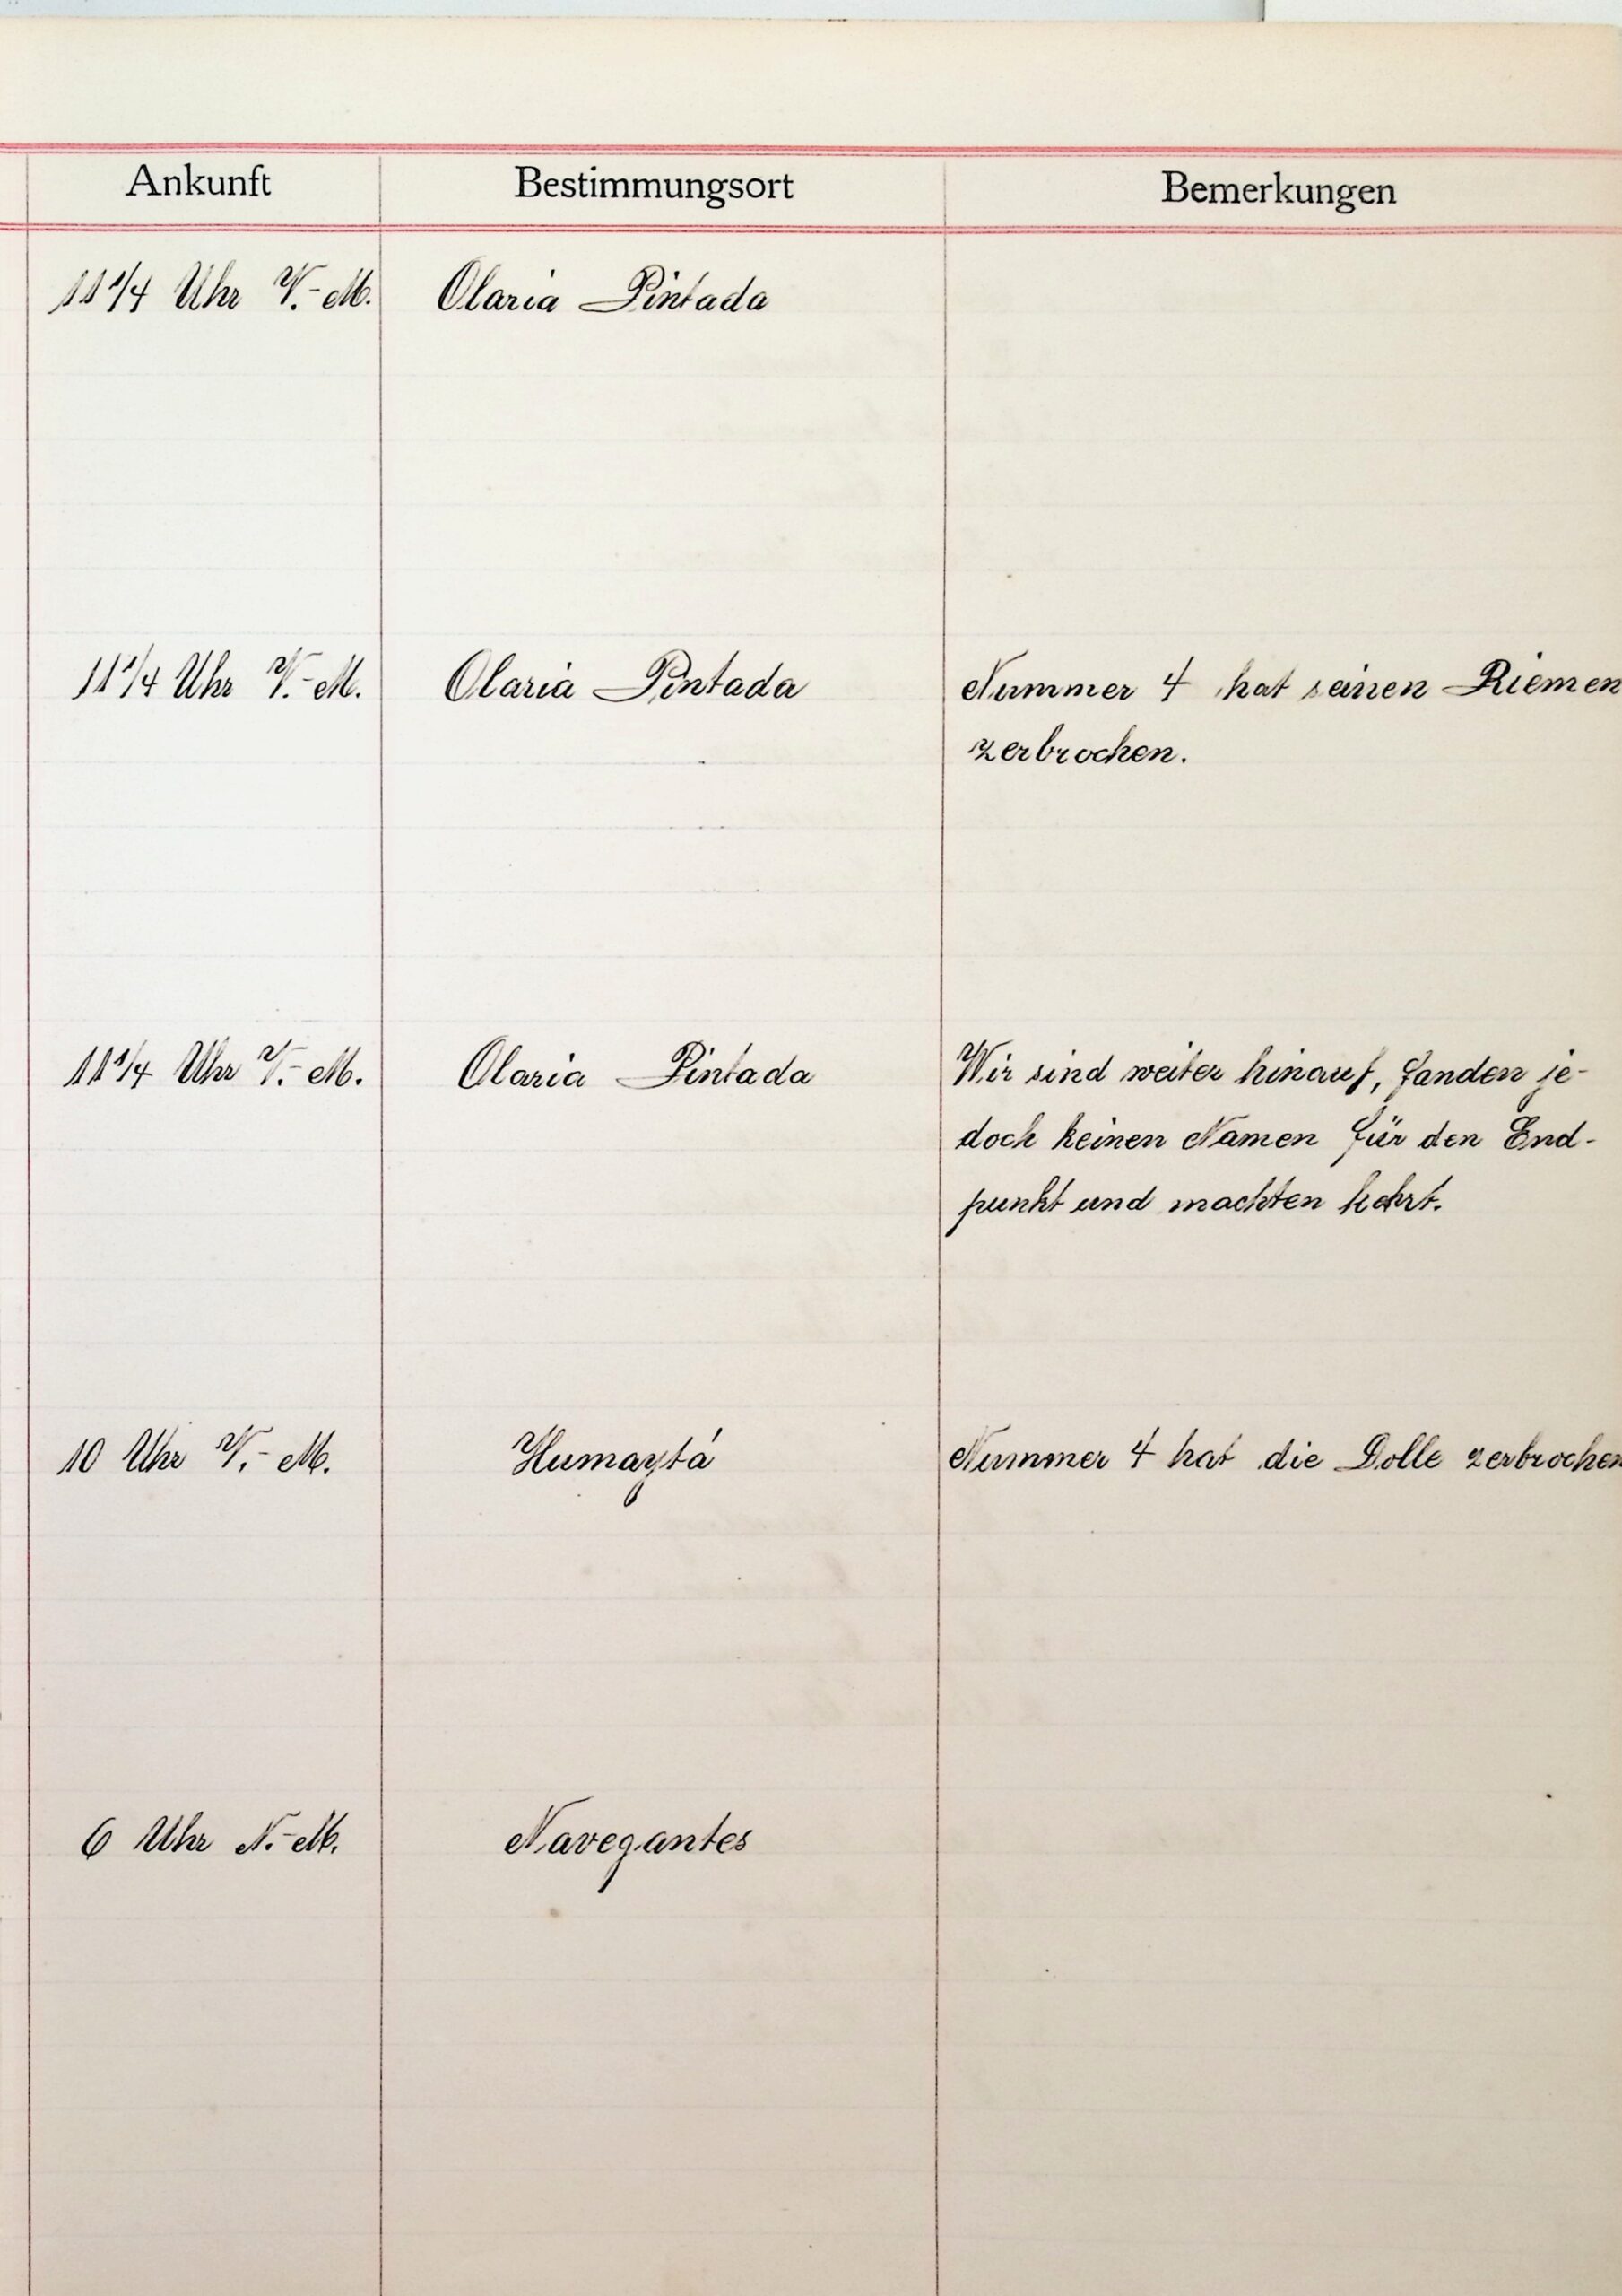 Ankunft Bestimmungsort Bemerkungen
11 1/4 Uhr V.-M. Olaria Pintada
11 1/4 Uhr V.-M. Olaria Pintada Nummer 4 hat seinen Riemen
zerbrochen.
11 1/4 Uhr V.-M. Olaria Pintada Wir sind weiter hinauf, fanden je-
doch keinen Namen für den End-
punkt und machten kehrt.
10 Uhr V.-M. Humaytá Nummer 4 hat die Dolle zerbrochen
6 Uhr N.-M. Navegantes